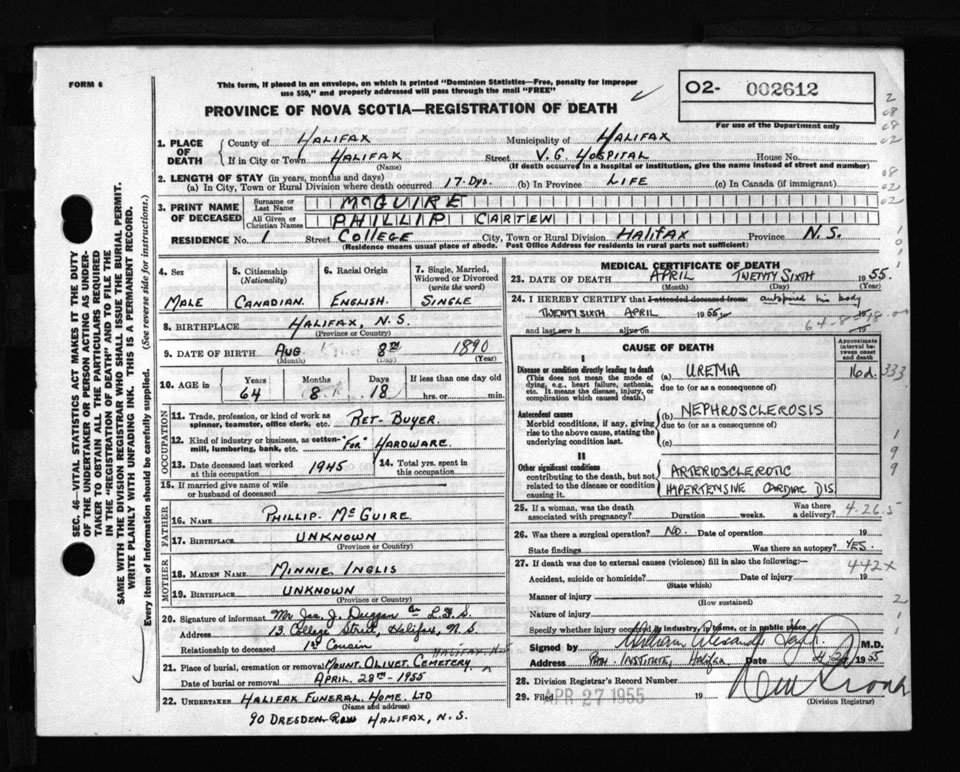 FORM 6
This form, if placed in an envelope, on which is printed "Dominion Statistics—Free, penalty for improper
use $50," and properly addressed will pass through the mail "FREE"
PROVINCE OF NOVA SCOTIA—REGISTRATION OF DEATH
O2- 002612
For use of the Department only
SEC. 46—VITAL STATISTICS ACT MAKES IT THE DUTY
OF THE UNDERTAKER OR PERSON ACTING AS UNDER-
TAKER TO OBTAIN ALL THE PARTICULARS REQUIRED
IN THE "REGISTRATION OF DEATH" AND TO FILE THE
SAME WITH THE DIVISION REGISTRAR WHO SHALL ISSUE THE BURIAL PERMIT.
WRITE PLAINLY WITH UNFADING INK. THIS IS A PERMANENT RECORD.
Every item of information should be carefully supplied. (See reverse side for instructions.)
1. PLACE OF DEATH County of HALIFAX Municipality of HALIFAX
If in City or Town HALIFAX Street V.G. HOSPITAL House No.
(Name) (If death occurred in a hospital or institution, give the name instead of street and number)
2. LENGTH OF STAY (in years, months and days)
(a) In City, Town or Rural Division where death occurred 17 Dys. (b) In Province LIFE (c) In Canada (if immigrant)
3. PRINT NAME OF DECEASED Surname or Last Name McGUIRE
All Given or Christian Names PHILLIP CARTEN
RESIDENCE No. 1 Street COLLEGE City, Town or Rural Division HALIFAX Province N.S.
(Residence means usual place of abode. Post Office Address for residents in rural parts not sufficient)
4. Sex MALE
5. Citizenship (Nationality) CANADIAN.
6. Racial Origin ENGLISH.
7. Single, Married, Widowed or Divorced (write the word) SINGLE
8. BIRTHPLACE HALIFAX, N.S.
(Province or Country)
9. DATE OF BIRTH AUG 8th 1890
(Month) (Day) (Year)
10. AGE in Years 64 Months 8 Days 18 If less than one day old
hrs. or min.
OCCUPATION
11. Trade, profession, or kind of work as spinner, teamster, office clerk, etc. RET-BUYER
12. Kind of industry or business, as cotten-mill, lumbering, bank, etc. "FOR" HARDWARE.
13. Date deceased last worked at this occupation 1945
14. Total yrs. spent in this occupation
15. If married give name of wife or husband of deceased
FATHER
16. NAME PHILLIP McGUIRE.
17. BIRTHPLACE UNKNOWN
(Province or Country)
MOTHER
18. MAIDEN NAME MINNIE INGLIS
19. BIRTHPLACE UNKNOWN
(Province or Country)
20. Signature of informant Mr Jas. J. Duggan L.F.S.
Address 13 College Street, Halifax, N.S.
Relationship to deceased 1st Cousin
21. Place of burial, cremation or removal MOUNT OLIVET CEMETERY, HALIFAX N.S
Date of burial or removal APRIL. 28th - 1955
22. UNDERTAKER HALIFAX FUNERAL HOME. LTD
(Name and address)
90 DRESDEN ROW HALIFAX, N.S.
MEDICAL CERTIFICATE OF DEATH
23. DATE OF DEATH APRIL TWENTY SIXTH 1955.
(Month) (Day) (Year)
24. I HEREBY CERTIFY that I attended deceased from: autopsied his body
TWENTY SIXTH APRIL 1955 to 19
and last saw h alive on 19
CAUSE OF DEATH
Approximate interval between onset and death
Disease or condition directly leading to death (a) UREMIA 16d. 333
(This does not mean the mode of dying, e.g., heart failure, asthenia, etc. It means the disease, injury, or complication which caused death.)
due to (or as a consequence of)
Antecedent causes (b) NEPHROSCLEROSIS
Morbid conditions, if any, giving rise to the above cause, stating the underlying condition last.
due to (or as a consequence of)
(c)
II
Other significant conditions contributing to the death, but not related to the disease or condition causing it.
ARTERIOSCLEROTIC
HYPERTENSIVE CARDIAC DIS.
25. If a woman, was the death associated with pregnancy? Duration weeks. Was there a delivery?
4-26-5
26. Was there a surgical operation? NO. Date of operation 19
State findings Was there an autopsy? YES.
27. If death was due to external causes (violence) fill in also the following:—
442x
Accident, suicide or homicide? Date of injury 19
(State which)
Manner of injury
(How sustained)
Nature of injury
Specify whether injury occurred in industry, in home, or in public place
Signed by William Alexander Taylor M.D.
Address PATH. INSTITUTE, Halifax. Date 1955
28. Division Registrar's Record Number
29. Filed APR 27 1955 19
(Division Registrar)